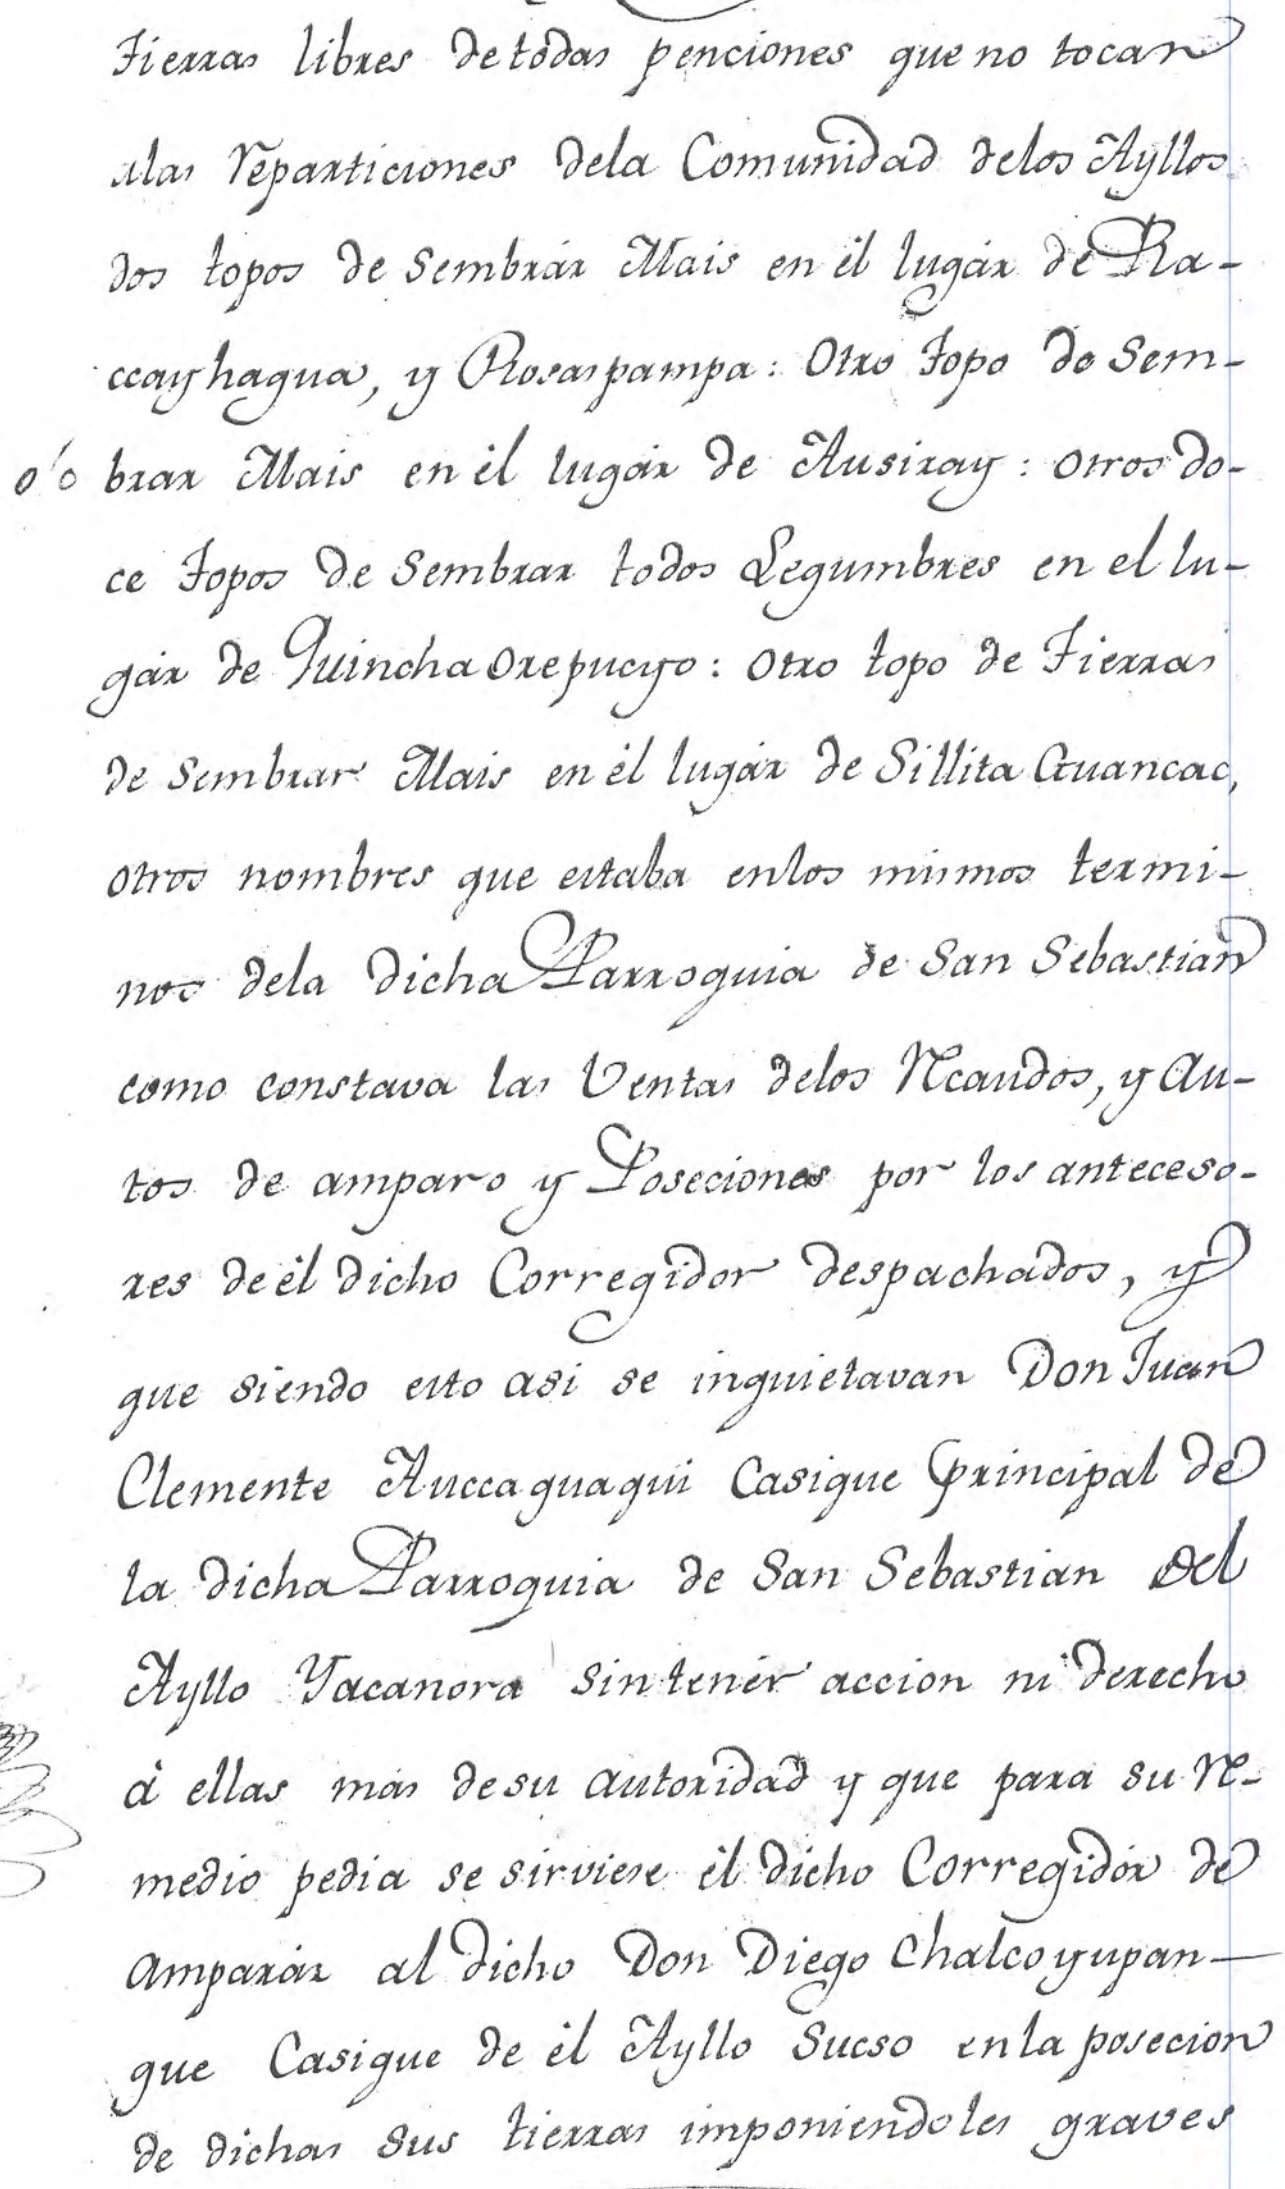 Tierras libres de todas penciones que no tocan
alas reparticiones dela Comunidad delos Ayllos
dos topos de Sembrár Mais en él lugár de Ra-
ccayhagua, y Rosaspampa: Otro Topo de Sem-
brar Mais en él lugár de Ausiray: otros do-
ce Topos de Sembrar todos Legumbres en el lu-
gár de Quinchaorepucyo: Otro topo de Tierras
de Sembrar Mais en él lugár de Sillita Guancac,
otros nombres que estaba enlos mismos termi-
nos dela dicha Parroquia de San Sebastian
como constava las Ventas delos Recaudos, y Au-
tos de amparo y Poseciones por los anteceso-
res de él dicho Corregidor despachados, y
que siendo esto asi se inquietavan Don Juan
Clemente Auccaguaqui Casique principal de
la dicha Parroquia de San Sebastian del
Ayllo Yacanora sin tenér accion ni derecho
á ellas mas de su autoridad y que para su re-
medio pedia se sirviese él dicho Corregidór de
Amparár al dicho Don Diego Chalcoyupan-
que Casique de él Ayllo Sucso en la posecion
de dichas sus tierras imponiendoles graves